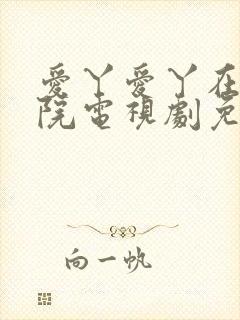 愛丫愛丫在
院電視劇免
向一帆